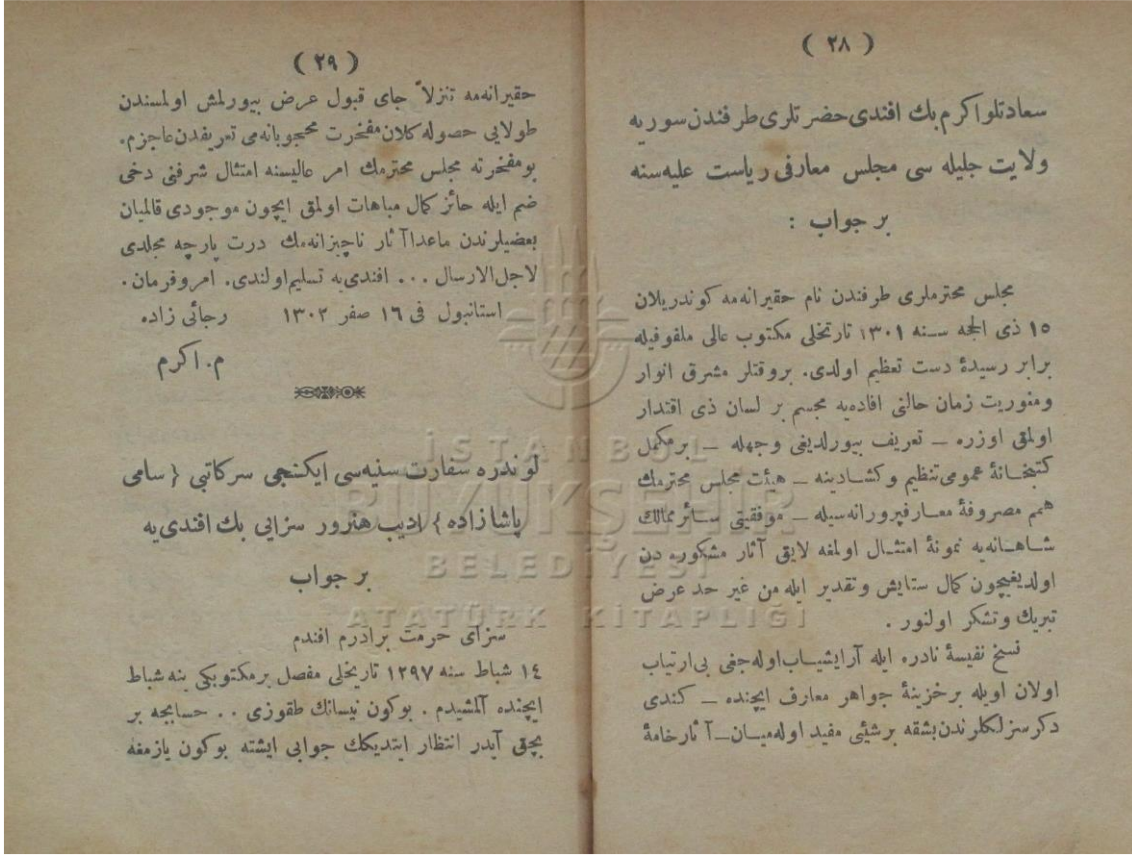 ( ٢٨ )
سعادتلو اكرم بك افندى حضرتلرى طرفندن سوريه
ولايت جليله سى مجلس معارفى رياست عليه سنه
بر جواب :
مجلس محترملرى طرفندن نام حقيرانه مه كوندريلان
١٥ ذى الحجه سنه ١٣٠١ تاريخلى مكتوب عالى ملفوفيله
برابر رسيدۀ دست تعظيم اولدى. بروقتلر مشرق انوار
ومنوريت زمان حالنى افاده يه مجسم بر لسان ذى اقتدار
اولمق اوزره ــ تعريف بيورلديغى وجهله ــ برمكمل
كتبخانۀ عمومى تنظيم وكشادينه ــ هيئت مجلس محترمك
همم مصروفۀ معارفپرورانه سيله ــ موفقيتى سائر ممالك
شاهانه يه نمونۀ امتثال اولمغه لايق آثار مشكوره دن
اولديغيچون كمال ستايش وتقدير ايله من غير حد عرض
تبريك وتشكر اولنور .
نسخ نفيسۀ نادره ايله آرايشياب اوله جغى بى ارتياب
اولان اويله برخزينۀ جواهر معارف ايچنده ــ كندى
دكرسزلكلرندن بشقه برشيئى مفيد اوله ميان ــ آثار خامۀ
( ٢٩ )
حقيرانه مه تنزلاً جاى قبول عرض بيورلمش اولمسندن
طولايى حصوله كلان مفخرت محجوبانه مى تعريفدن عاجزم.
بومفخرته مجلس محترمك امر عاليسنه امتثال شرفنى دخى
ضم ايله حائز كمال مباهات اولمق ايچون موجودى قالميان
بعضيلرندن ماعدا آثار ناچيزانه مك درت پارچه مجلدى
لاجل الارسال ... افندى يه تسليم اولندى. امر وفرمان.
استانبول فى ١٦ صفر ١٣٠٢ رجائى زاده
م. اكرم
لوندره سفارت سنيه سى ايكنجى سركاتبى { سامى
پاشا زاده } اديب هنرور سزايى بك افندى يه
بر جواب
سزاى حرمت برادرم افندم
١٤ شباط سنه ١٢٩٧ تاريخلى مفصل برمكتوبكى ينه شباط
ايچنده آلمشيدم . بوكون نيسانك طقوزى . . حسابجه بر
بچق آيدر انتظار ايتديكك جوابى ايشته بوكون يازمغه
İSTANBUL
BÜYÜKŞEHİR
BELEDİYESİ
ATATÜRK KİTAPLIĞI